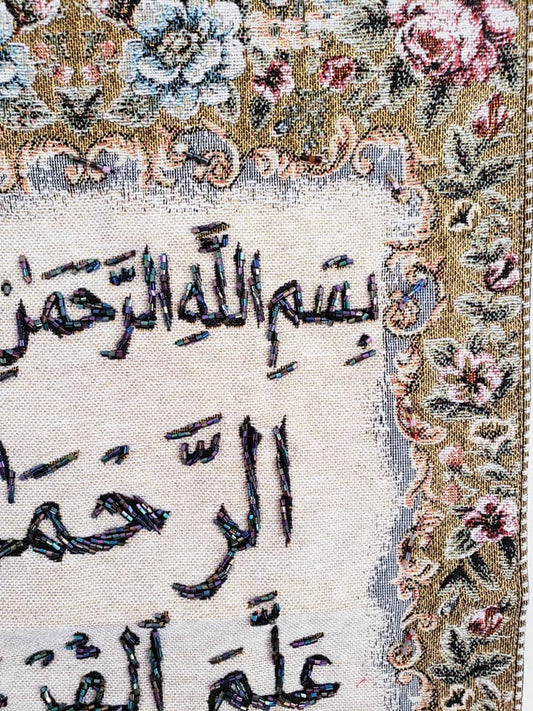 بِسْمِ اللَّهِ الرَّحْمَٰنِ
الرَّحْمَ
عَلَّمَ الْقُر